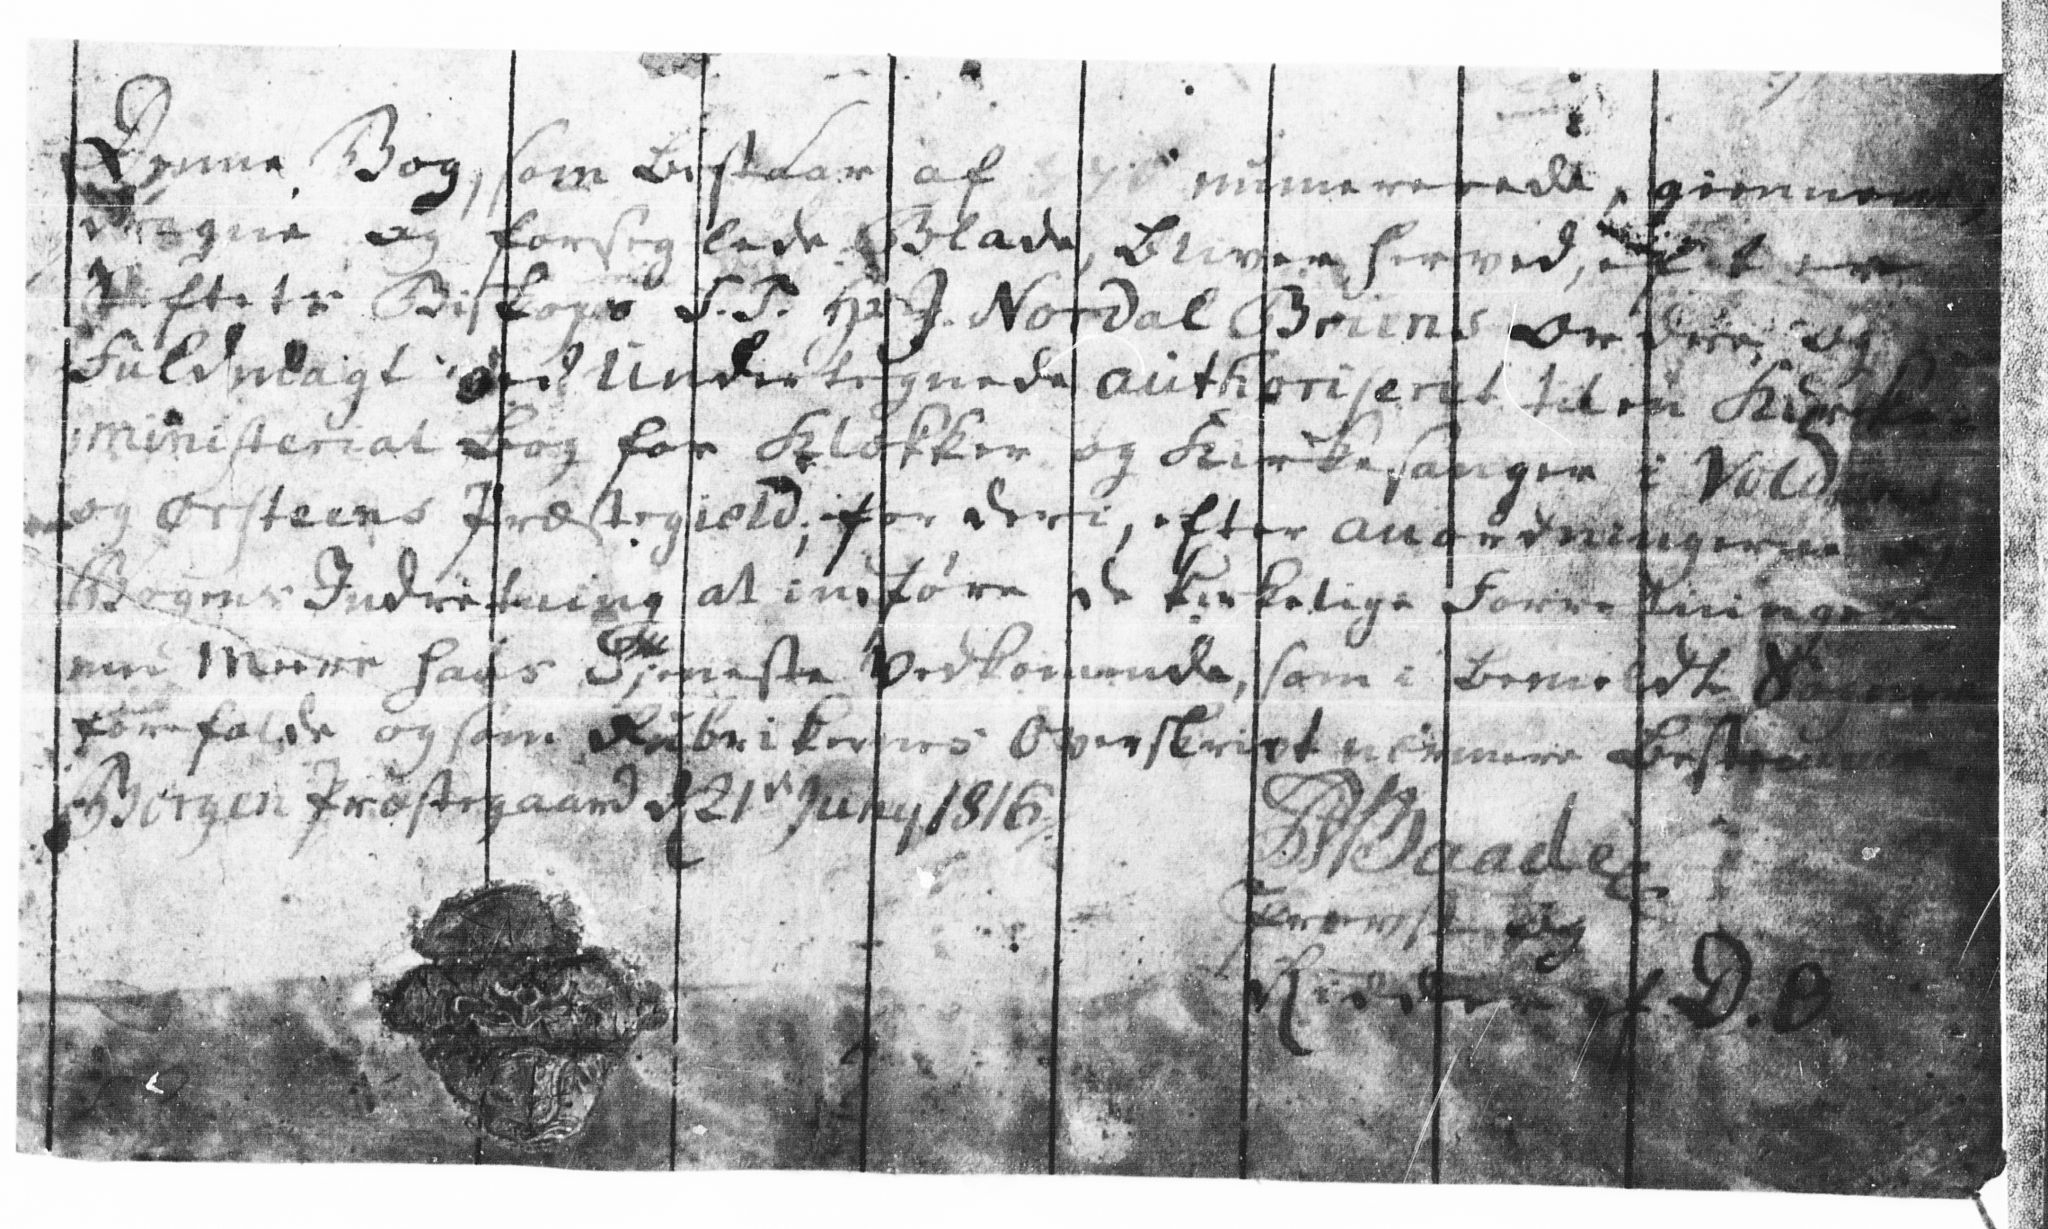 Denne Bog, som bestaar af numererede, giennem,
dragne og forseglede Blade, bliver herved, efter
Stiftets Biskops S. T. Hr J. Nordal Bruns Ordre og
Fuldmagt ved Undertegnede authoriseret til en Kirke
ministerial Bog for Klokker og Kirkesanger i Voldens
og Ørsteens Præstegield, for deri, efter Anordningerne og
Bogens Indretning at indføre de kirkelige Forretninger
med meere hans Tjeneste Vedkommende, som i bemeldte Sogne
forefalde og som Rubrikernes Overskrivt nærmere bestemme.
Bergen Præstegaard d 21de Juny 1816
Baade
Provst og
Ridder af D. O.